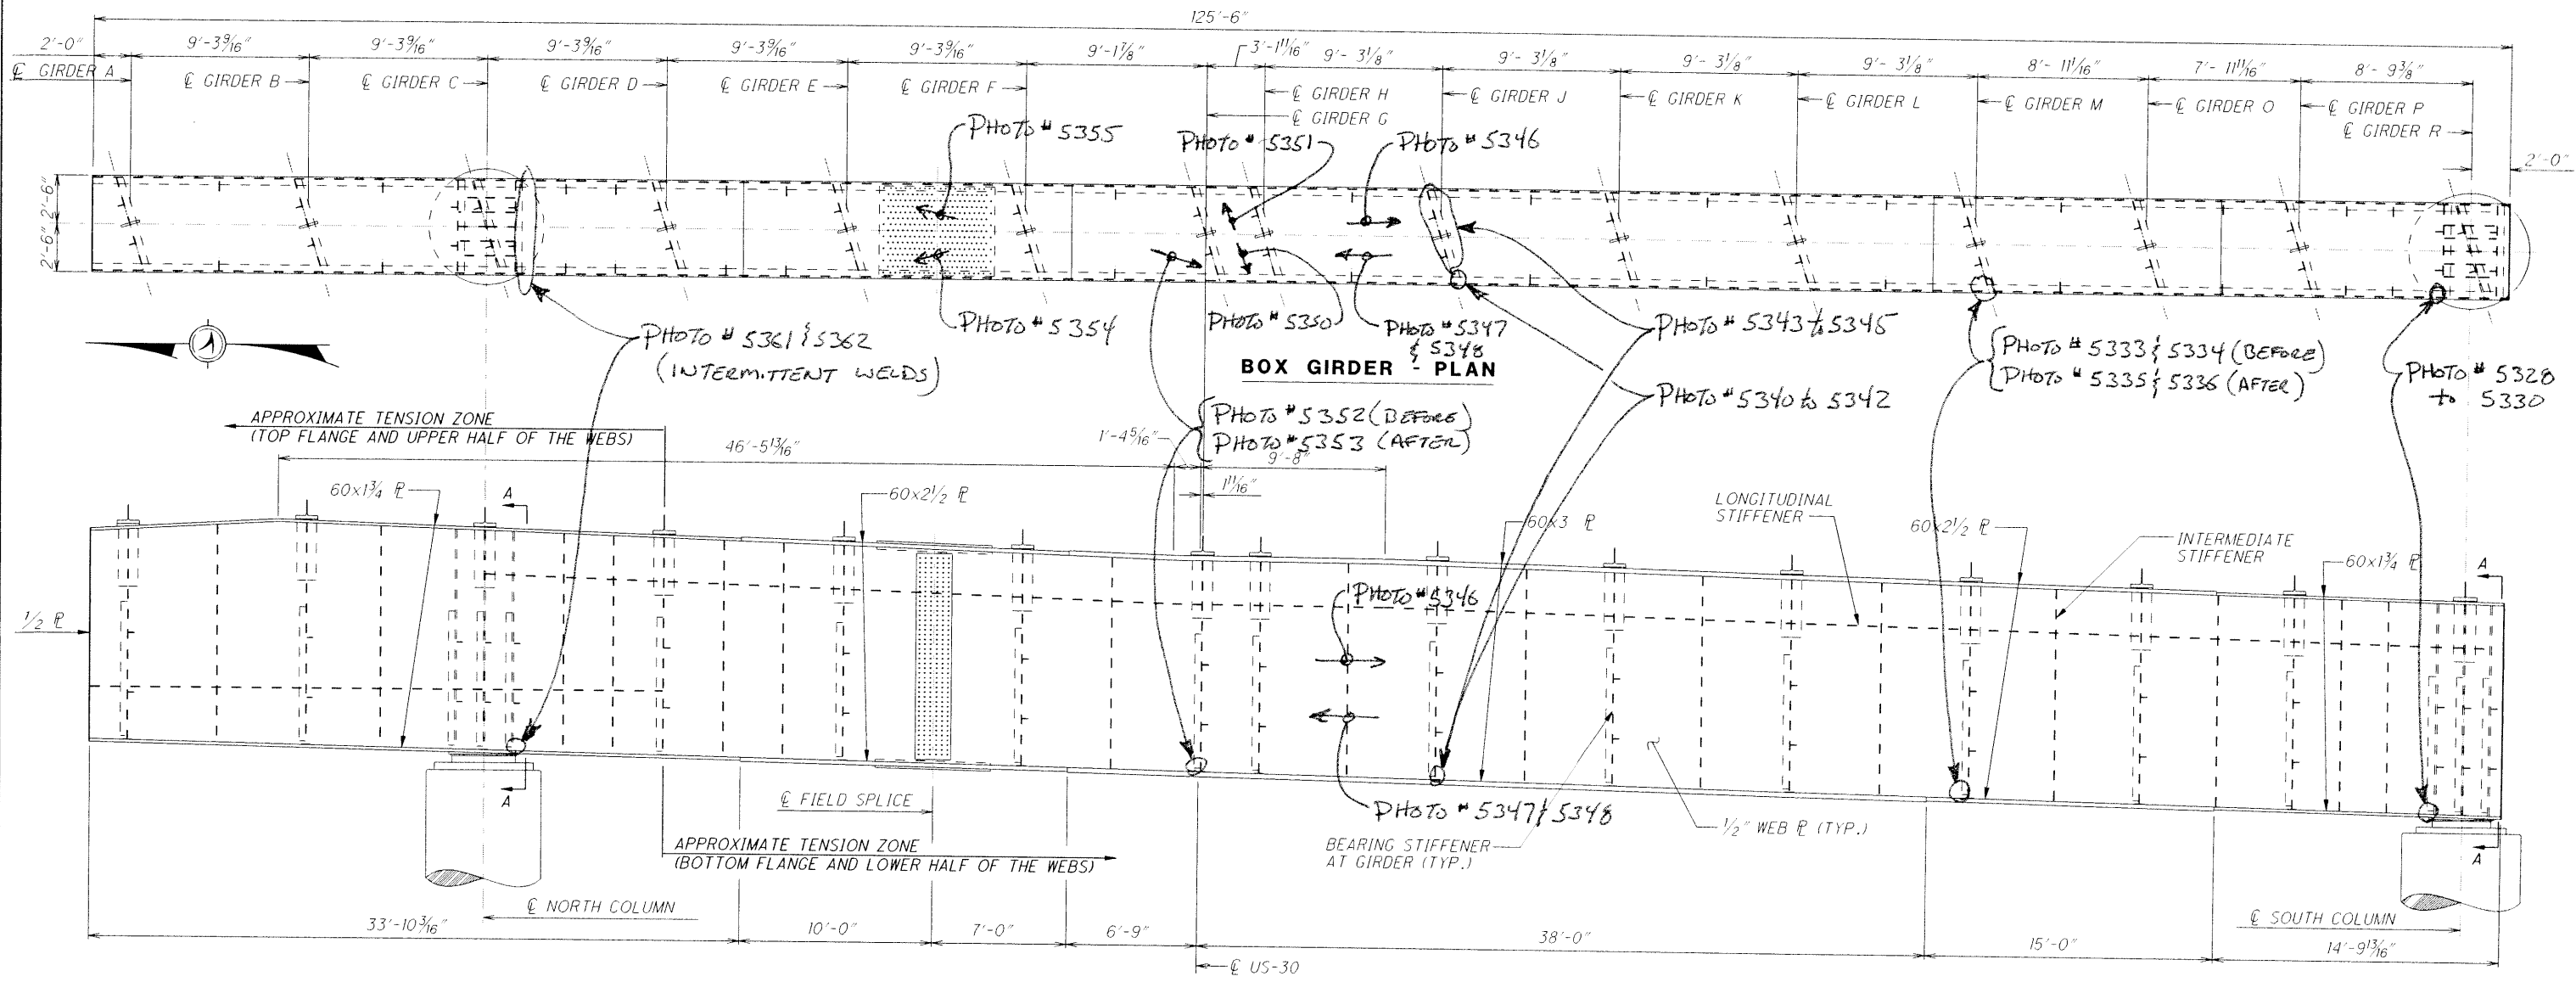 125'-6"
2'-0"
9'-3 9/16"
9'-3 9/16"
9'-3 9/16"
9'-3 9/16"
9'-3 9/16"
9'-1 7/8"
3'-1 11/16"
9'- 3 1/8"
9'- 3 1/8"
9'- 3 1/8"
9'- 3 1/8"
8'- 11 11/16"
7'- 11 11/16"
8'- 9 3/8"
℄ GIRDER A
℄ GIRDER B
℄ GIRDER C
℄ GIRDER D
℄ GIRDER E
℄ GIRDER F
℄ GIRDER H
℄ GIRDER G
℄ GIRDER J
℄ GIRDER K
℄ GIRDER L
℄ GIRDER M
℄ GIRDER O
℄ GIRDER P
℄ GIRDER R
2'-0"
PHOTO # 5355
PHOTO # 5351
PHOTO # 5346
2'-6" 2'-6"
PHOTO # 5361 & 5362
(INTERMITTENT WELDS)
PHOTO # 5354
PHOTO # 5350
PHOTO # 5347
& 5348
BOX GIRDER - PLAN
PHOTO # 5343 to 5345
PHOTO # 5340 to 5342
PHOTO # 5333 & 5334 (BEFORE)
PHOTO # 5335 & 5336 (AFTER)
PHOTO # 5328
to 5330
PHOTO # 5352 (BEFORE)
PHOTO # 5353 (AFTER)
APPROXIMATE TENSION ZONE
(TOP FLANGE AND UPPER HALF OF THE WEBS)
46'-5 13/16"
1'-4 5/16"
9'-8"
1 11/16"
60x1 3/4 ℄
A
60x2 1/2 ℄
60x3 ℄
LONGITUDINAL
STIFFENER
60x2 1/2 ℄
INTERMEDIATE
STIFFENER
60x1 3/4 ℄
A
1/2 ℄
PHOTO # 5346
PHOTO # 5347 & 5348
A
℄ FIELD SPLICE
APPROXIMATE TENSION ZONE
(BOTTOM FLANGE AND LOWER HALF OF THE WEBS)
BEARING STIFFENER
AT GIRDER (TYP.)
1/2" WEB ℄ (TYP.)
A
℄ NORTH COLUMN
℄ SOUTH COLUMN
33'-10 3/16"
10'-0"
7'-0"
6'-9"
38'-0"
15'-0"
14'-9 13/16"
℄ US-30